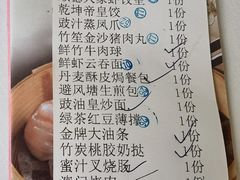 乾坤帝皇饺 1份
豉汁蒸凤爪 1份
竹笙金沙猪肉丸 1份
鲜竹牛肉球 1份
鲜虾云吞面 1份
丹麦酥皮焗餐包 1份
避风塘生煎包 1份
豉油皇炒面 1份
绿茶红豆薄撑 1份
金牌大油条 1份
竹炭桃胶奶挞 1份
蜜汁叉烧肠 1份
1份